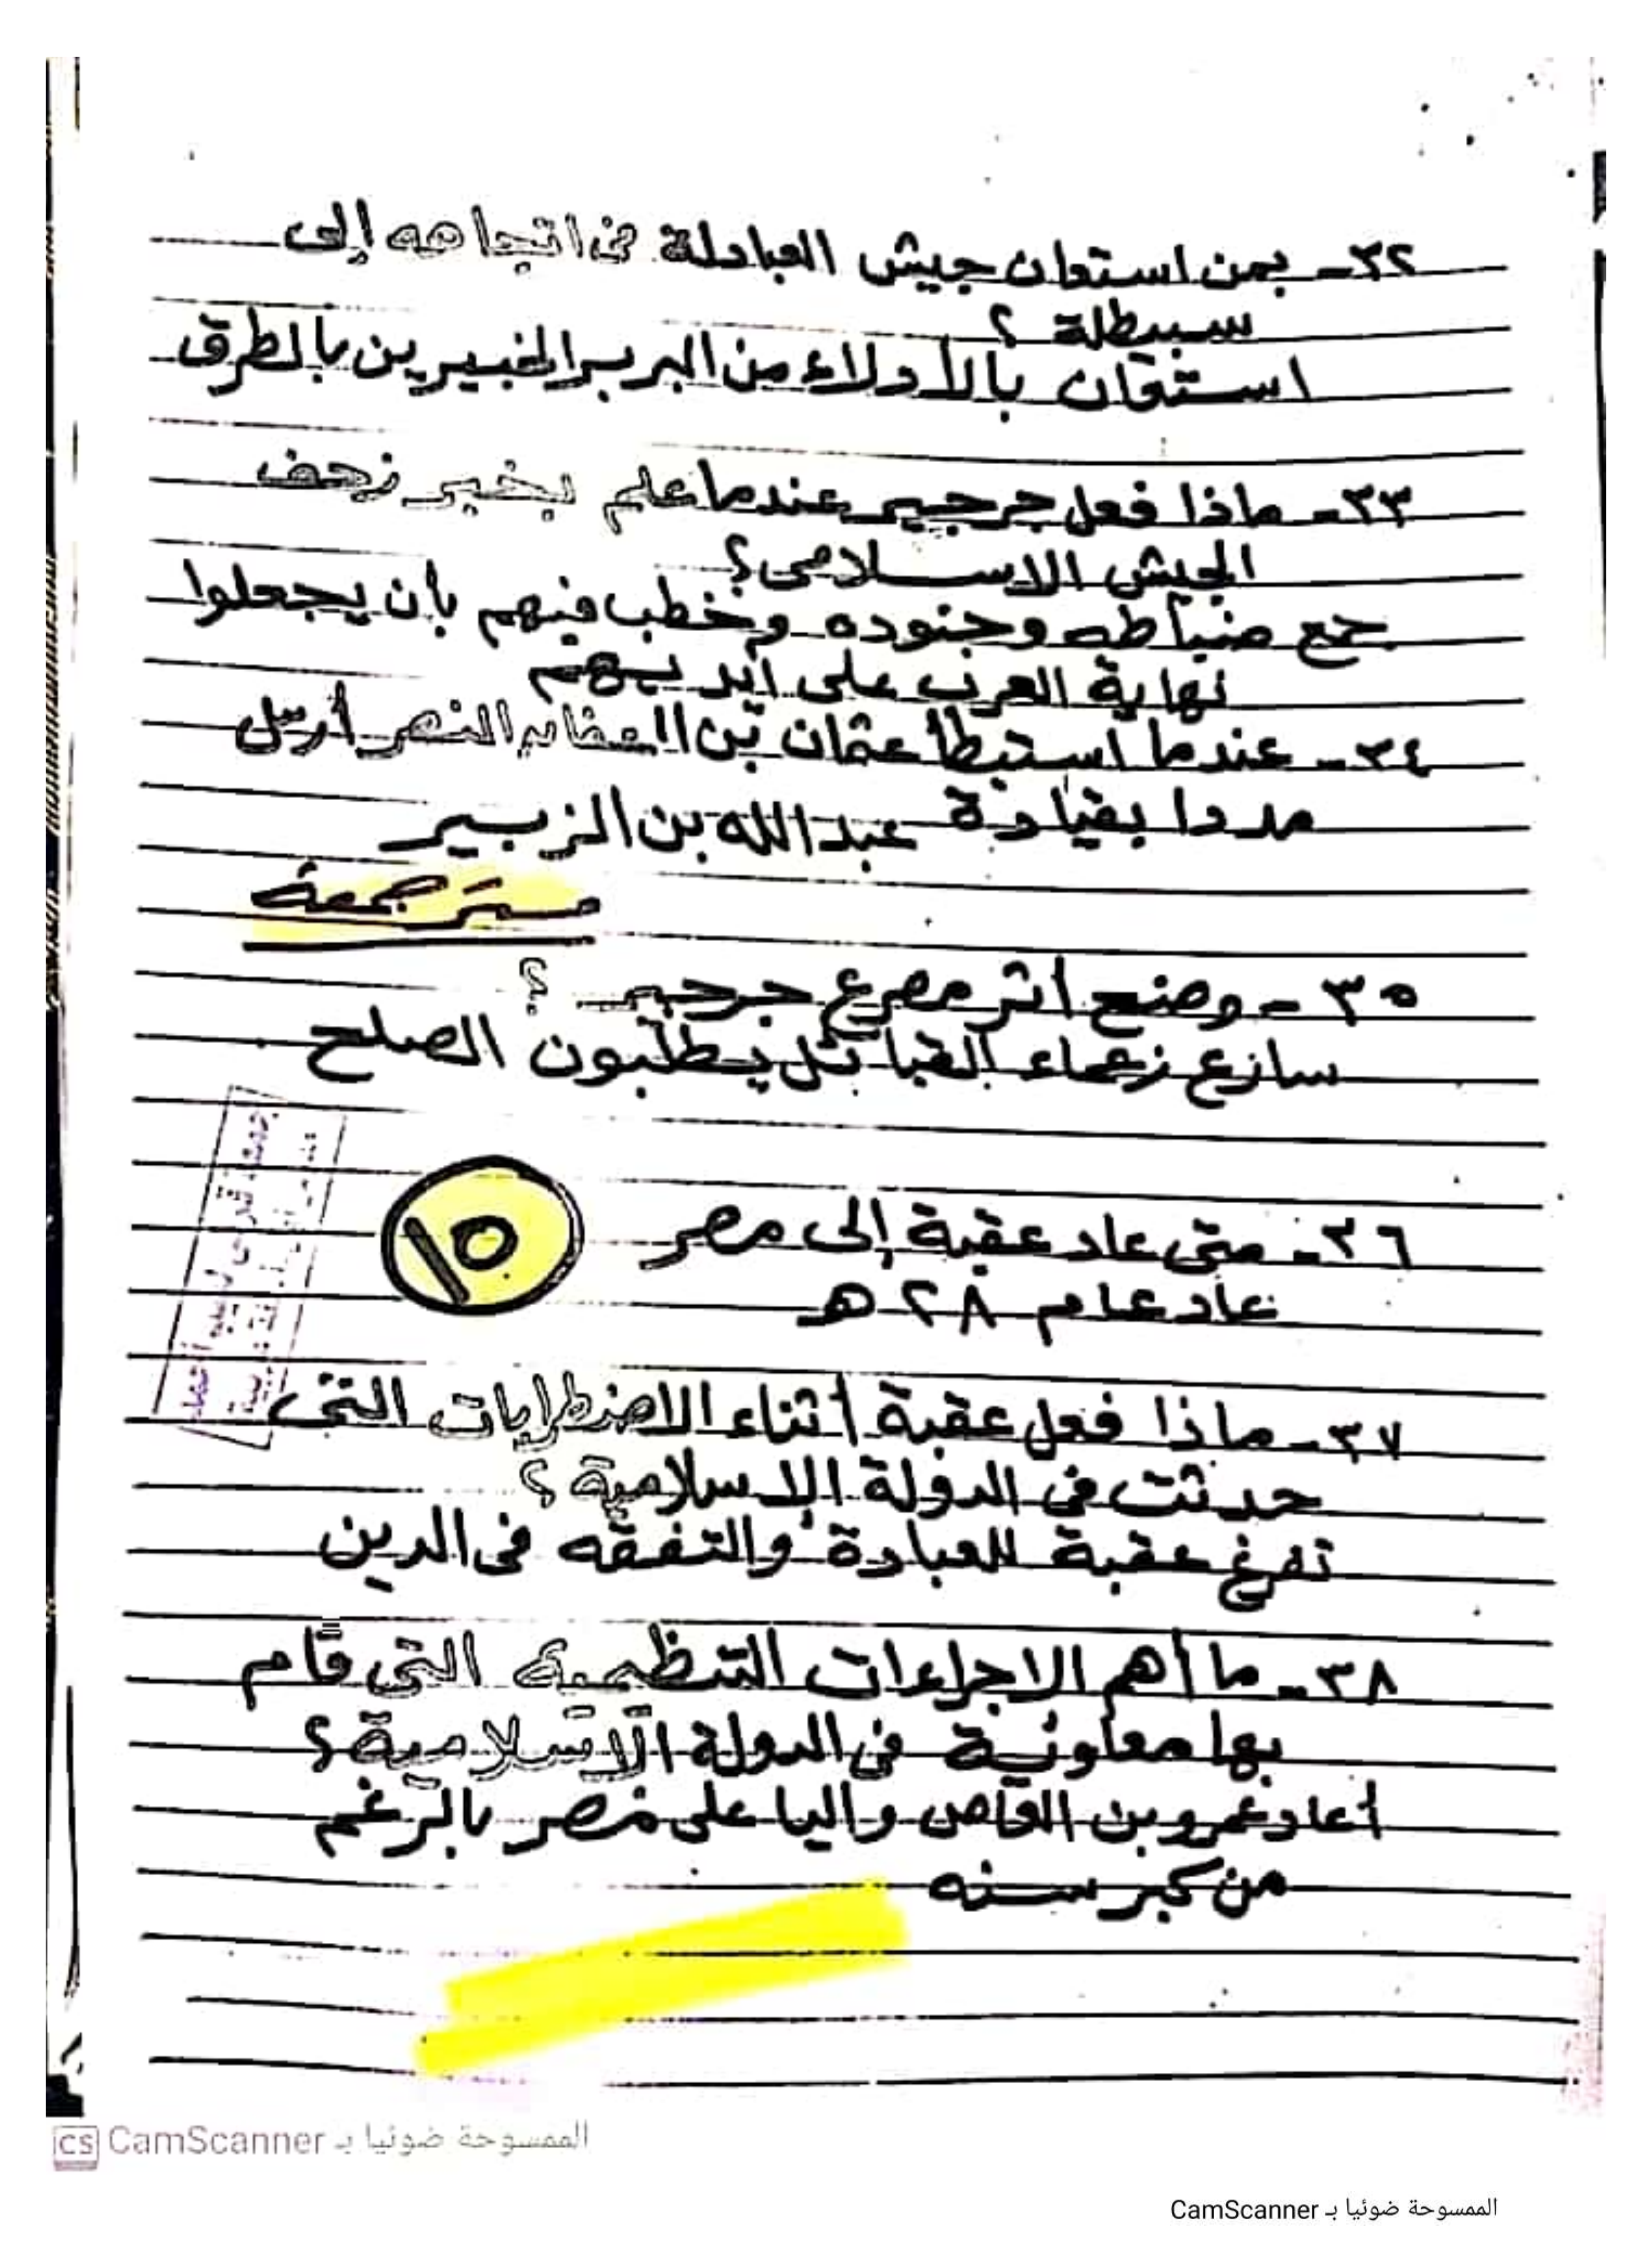 ٣٢- بمن استعان جيش العبادلة فى اتجاهه إلى
سبيطلة ؟
استعان بالأدلاء من البربر الخبيرين بالطرق
٣٣- ماذا فعل جرجير عندما علم بخبر زحف
الجيش الاسلامى ؟
جمع ضباطه وجنوده وخطب فيهم بأن يجعلوا
نهاية العرب على أيديهم
٣٤- عندما استبطأ عثمان بن العفان النصر أرسل
مددا بقيادة عبد الله بن الزبير
٣٥- وضح أثر مصرع جرجير ؟
سارع زعماء القبائل يطلبون الصلح
٣٦- متى عاد عقبة إلى مصر
١٥
عاد عام ٢٨ هـ
٣٧- ماذا فعل عقبة أثناء الاضطرابات التى
حدثت فى الدولة الإسلامية ؟
تفرغ عقبة للعبادة والتفقه فى الدين
٣٨- ما أهم الاجراءات التنظيمية التى قام
بها معاوية فى الدولة الاسلامية ؟
أعاد عمرو بن العاص واليا على مصر بالرغم
من كبر سنه
الممسوحة ضوئيا بـ CamScanner
الممسوحة ضوئيا بـ CamScanner